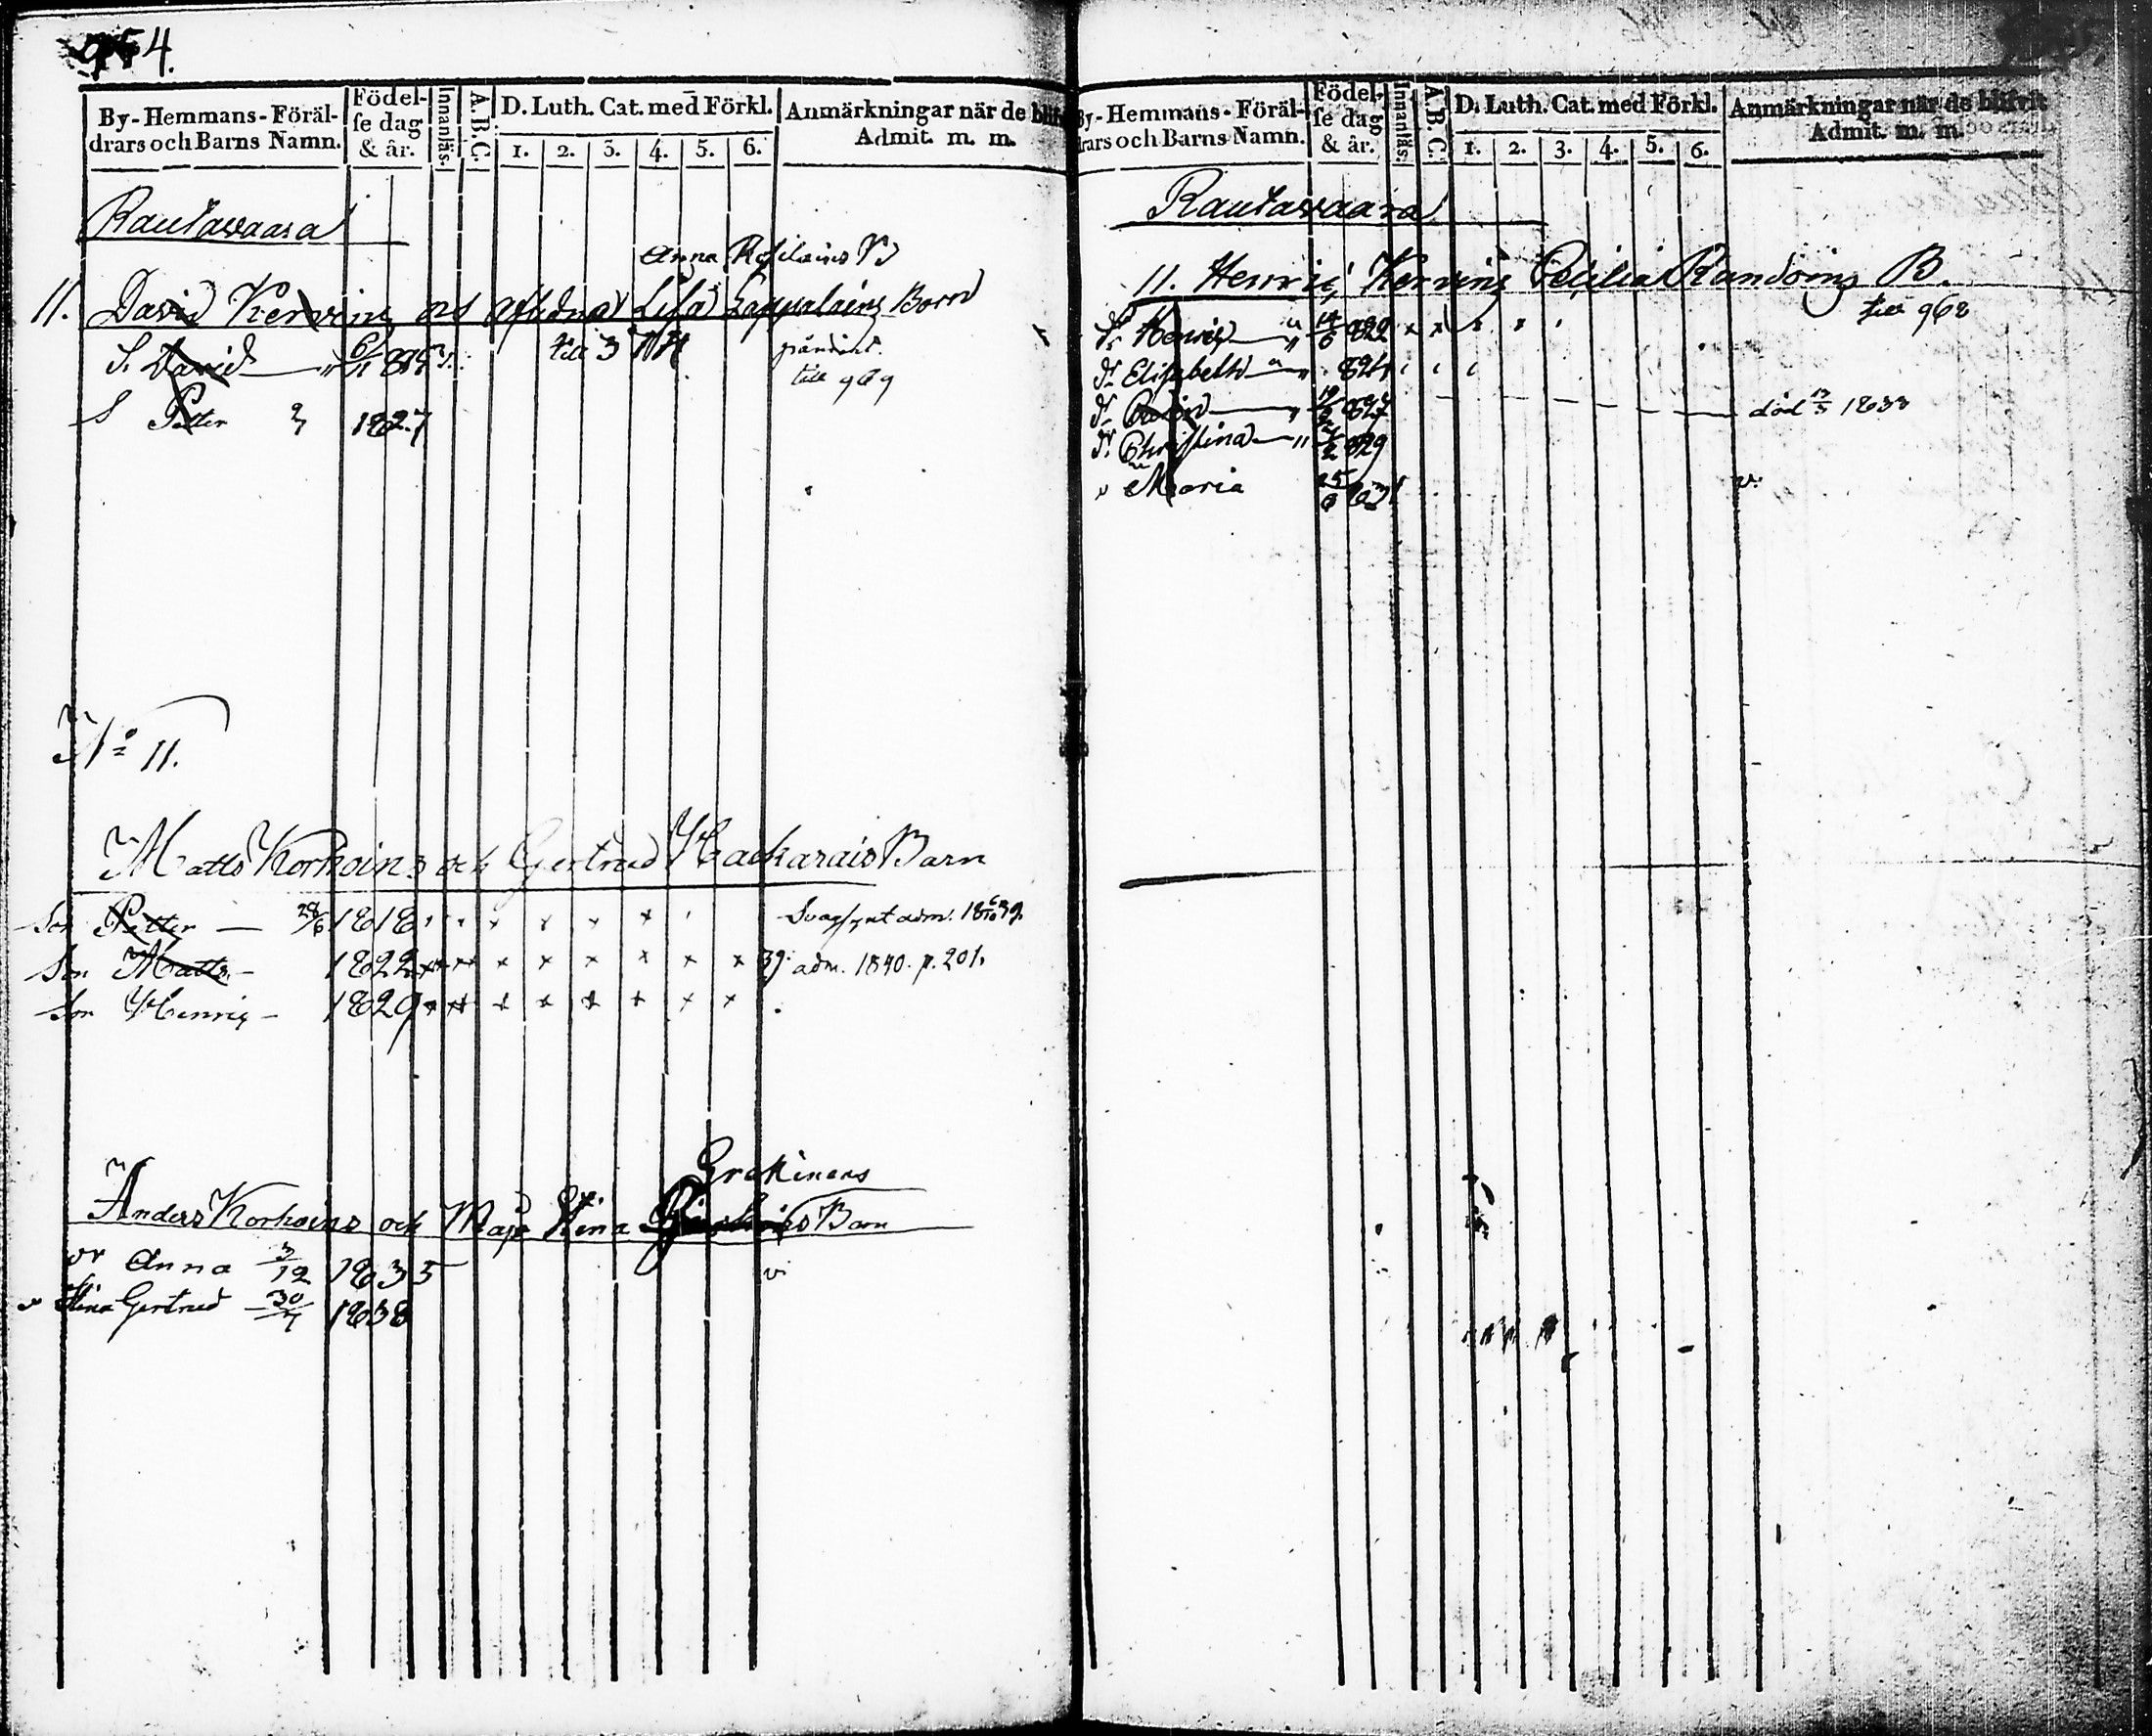 954.
By-Hemmans-Föräl-
drars och Barns Namn.
Födel-
se dag
& år.
Innanläs.
A.B.C.
D. Luth. Cat. med Förkl.
1. 2. 3. 4. 5. 6.
Anmärkningar när de blif
Admit. m. m.
Rautawaara
Anna
11. David Kervins och afledna Lisa Lappalains Barn
S. David
till 3
till 969
S Petter 1827
No 11.
Matts Korhoins och Gertrud Hackarais Barn
Son Petter — 28/6 1818 Svagsynt adm. 1839.
Son Matts — 1822 x x x x x x 39. adm. 1840. p. 201.
Son Henric — 1829 x x x x x x
Grekinens
Anders Korhoins och Maja Stina Barn
Dr Anna 3/12 1835 v.
" Stina Gertrud 30/7 1838
By-Hemmans-Föräl-
drars och Barns Namn.
Födel-
se dag
& år.
Innanläs.
A.B.C.
D. Luth. Cat. med Förkl.
1. 2. 3. 4. 5. 6.
Anmärkningar när de blifvit
Admit. m. m.
Rautawaara
11. Henric Kervins Cecilia Randoins B.
till 968
S. Henric 14/6 822
Dr Elisabeth 824
827 död 1833
Dr Christina 829
" Maria 25 831 v.